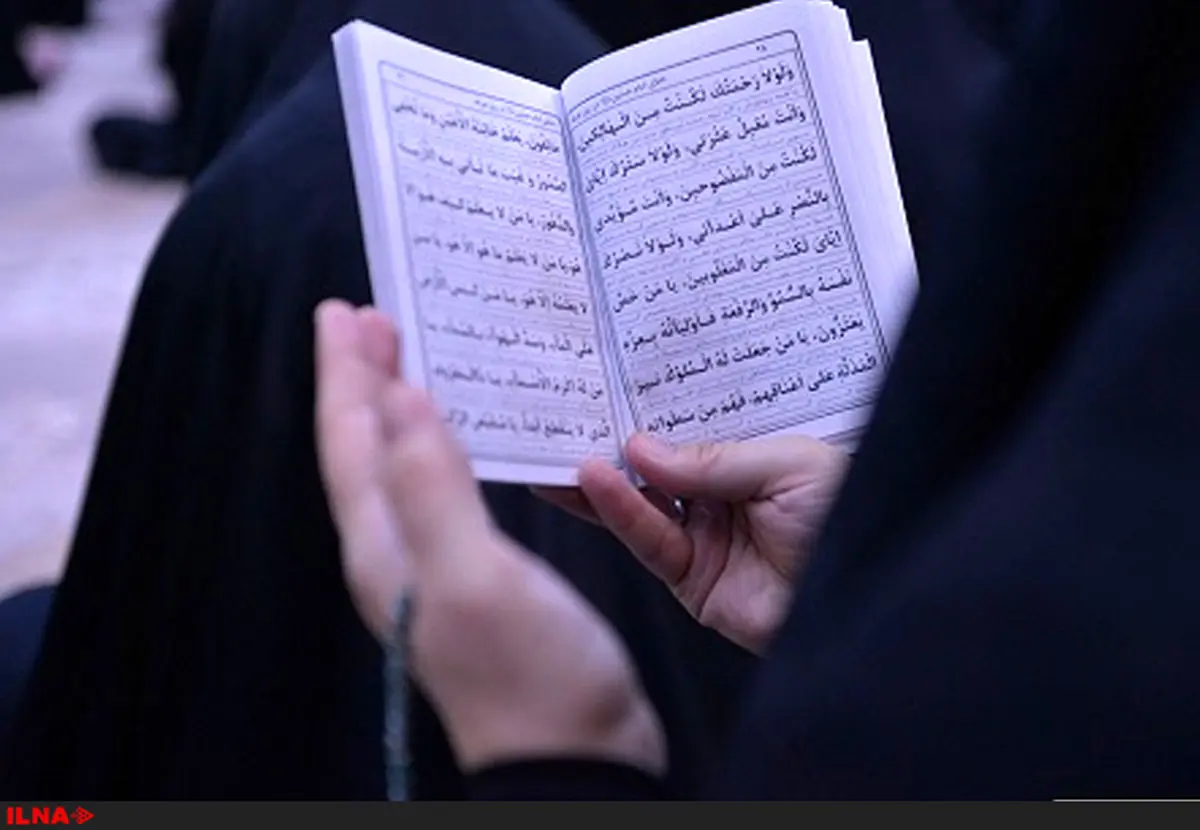 وَلَوْلا رَحْمَتُكَ لَكُنْتُ مِنَ الْهالِكينَ
وَاَنْتَ مُقيلُ عَثْرَتي، وَلَوْلا سَتْرُكَ اِيّايَ
لَكُنْتُ مِنَ الْمَفْضُوحينَ، وَاَنْتَ مُؤَيِّدي
بِالنَّصْرِ عَلى اَعْدائي، وَلَوْلا نَصْرُكَ
اِيّايَ لَكُنْتُ مِنَ الْمَغْلُوبينَ، يا مَنْ خَصَّ
نَفْسَهُ بِالسُّمُوِّ وَالرِّفْعَةِ فَاَوْلِيائُهُ بِعِزِّهِ
يَعْتَزُّونَ، يا مَنْ جَعَلَتْ لَهُ الْمُلُوكُ نيرَ
الْمَذَلَّةِ عَلى اَعْناقِهِمْ، فَهُمْ مِنْ سَطَواتِهِ
خائِفُونَ، يَعْلَمُ خائِنَةَ الْاَعْيُنِ وَما تُخْفِي
الصُّدُورُ وَ غَيْبَ ما تَأْتي بِهِ الْاَزْمِنَةُ
وَالدُّهُورُ، يا مَنْ لا يَعْلَمُ كَيْفَ هُوَ اِلّا
هُوَ، يا مَنْ لا يَعْلَمُ ما هُوَ اِلّا هُوَ، يا مَنْ
لا يَعْلَمُهُ اِلّا هُوَ، يا مَنْ كَبَسَ الْاَرْضَ
عَلَى الْماءِ، وَسَدَّ الْهَواءَ بِالسَّماءِ، يا
مَنْ لَهُ اَكْرَمُ الْاَسْماءِ، يا ذَا الْمَعْرُوفِ
الَّذي لا يَنْقَطِعُ اَبَداً، يا مُقَيِّضَ الرَّكْبِ
ILNA